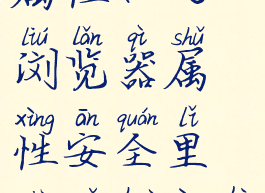 liú lǎn qì shǔ
浏览器属
xìng ān quán lǐ
性安全里